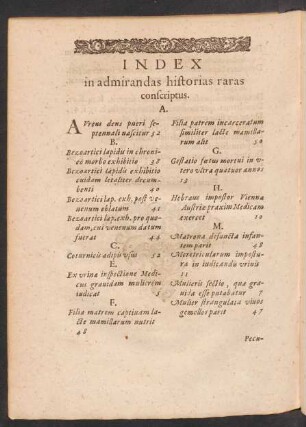 INDEX
in admirandas historias raras
conscriptus.
A.
AUreus dens pueri se-
ptennali nascitur 52
B.
Bezoartici lapidu in chroni-
co morbo exhibitio 38
Bezoartici lapidu exhibitio
cuidam letaliter decum-
benti 40
Bezoartici lap. exh. post ve-
nenum oblatum 41
Bezoartici lap. exh. pro quo-
dam, cui venenum datum
fuerat 42
C.
Coturnicu adipis usus 52
E.
Ex urina inspectione Medi-
cus gravidam mulierem
indicat 5
F.
Filia matrem captivam la-
cte mamillarum nutrit
48
Filia patrem incarceratum
similiter lacte mamilla-
rum alit 50
G.
Gestatio fœtus mortui in u-
tero ultra quatuor annos
13
H.
Hebræus impostor Viennæ
Austriæ praxim Medicam
exercet 10
M.
Matrona defuncta infan-
tem parit 48
Meretricularum impostu-
ra in iudicandu urinis
11
Mulieris sectio, quæ gra-
vida esse putabatur 7
Mulier strangulata vivos
gemellos parit 47
Pecu-